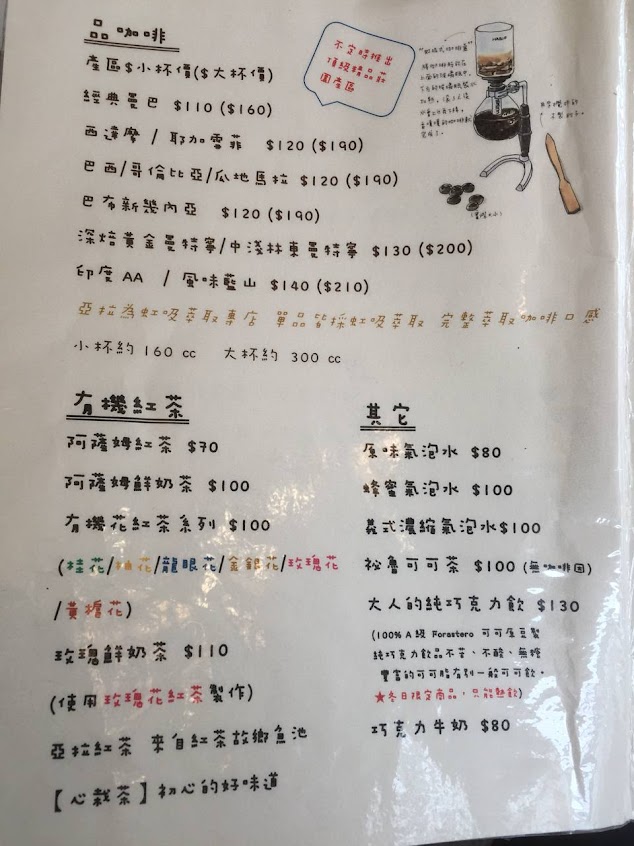 品咖啡
產區$小杯價($大杯價)
經典曼巴 $110 ($160)
西達摩 / 耶加雪菲 $120 ($190)
巴西/哥倫比亞/瓜地馬拉 $120 ($190)
巴布新幾內亞 $120 ($190)
深焙黃金曼特寧/中淺林東曼特寧 $130 ($200)
印度AA / 風味藍山 $140 ($210)
亞拉為虹吸萃取專店 單品皆採虹吸萃取 完整萃取咖啡口感
小杯約 160 cc 大杯約 300 cc
不定時推出
頂級精品莊
園產區
有機紅茶
阿薩姆紅茶 $70
阿薩姆鮮奶茶 $100
有機花紅茶系列 $100
(桂花/柚花/龍眼花/金銀花/玫瑰花
/黃梔花)
玫瑰鮮奶茶 $110
(使用玫瑰花紅茶製作)
亞拉紅茶 來自紅茶故鄉魚池
【心栽茶】初心的好味道
其它
原味氣泡水 $80
蜂蜜氣泡水 $100
義式濃縮氣泡水$100
祕魯可可茶 $100 (無咖啡因)
大人的純巧克力飲 $130
(100% A級 Forastero 可可原豆製
純巧克力飲品不苦、不酸、無糖
豐富的可可脂有別一般可可飲。
★冬日限定商品，只能熱飲)
巧克力牛奶 $80